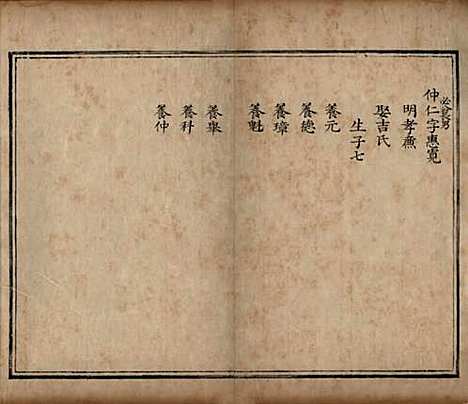 仲仁字惠寛
明孝廉
娶吉氏
生子七
養元
養德
養璋
養魁
養舉
養科
養仲